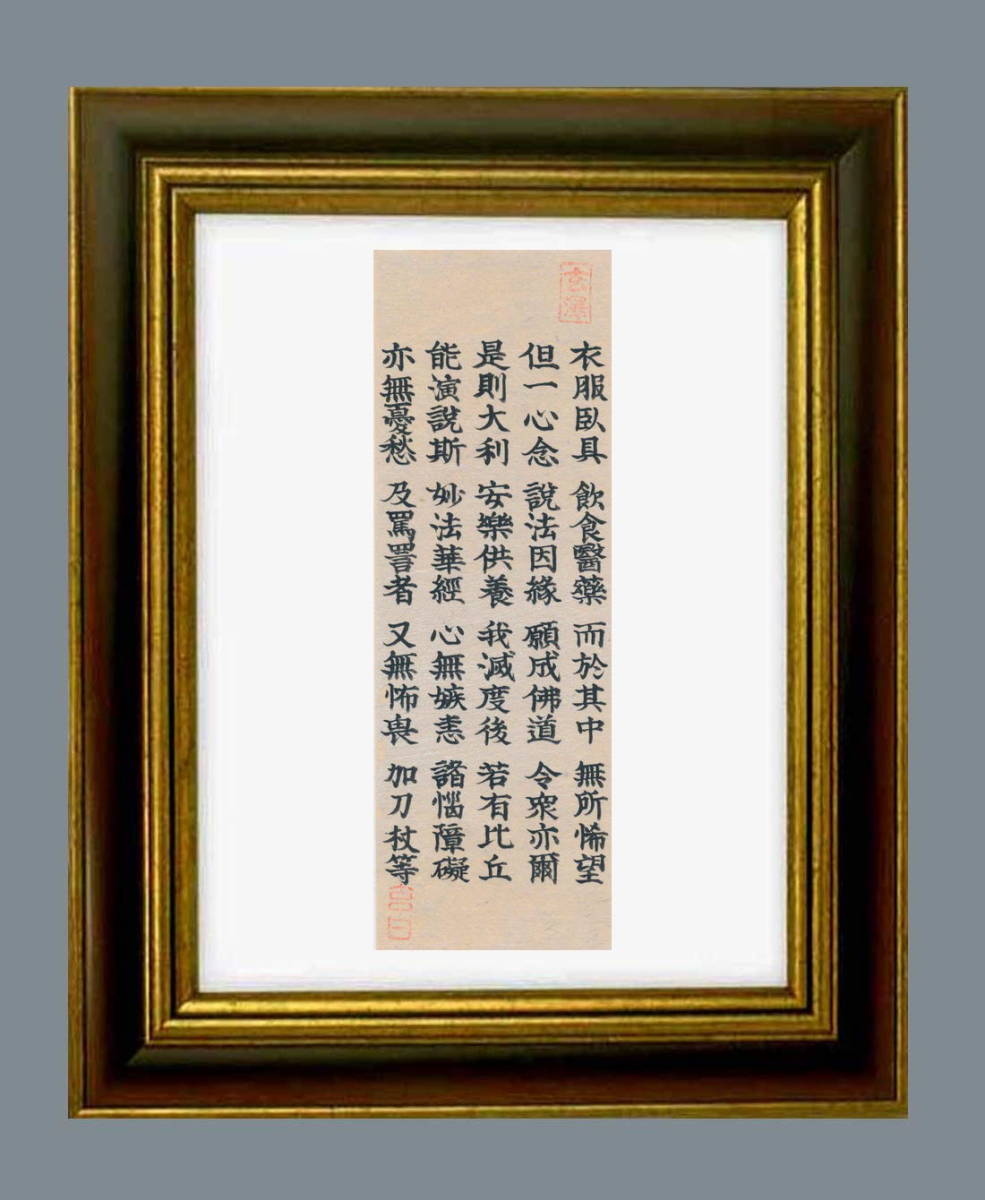 衣服臥具 飲食醫藥 而於其中 無所悕望
但一心念 說法因緣 願成佛道 令衆亦爾
是則大利 安樂供養 我滅度後 若有比丘
能演說斯 妙法華經 心無嫉恚 諸惱障礙
亦無憂愁 及罵詈者 又無怖畏 加刀杖等